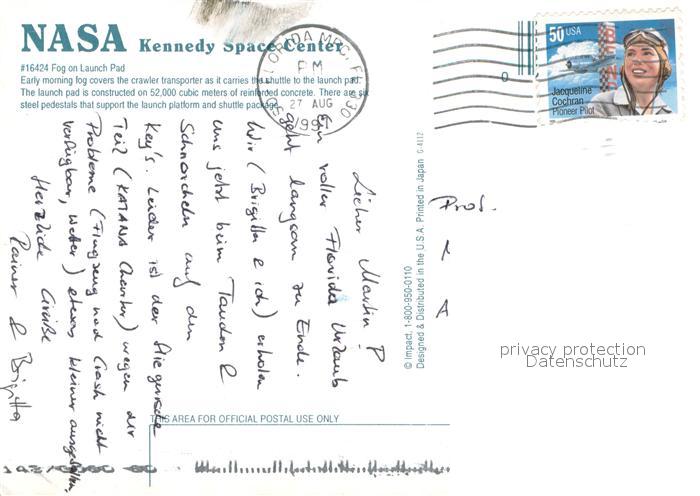 NASA Kennedy Space Center
#16424 Fog on Launch Pad
Early morning fog covers the crawler transporter as it carries the shuttle to the launch pad.
The launch pad is constructed on 52,000 cubic meters of reinforced concrete. There are six
steel pedestals that support the launch platform and shuttle package.
PM
27 AUG
50 USA
Jacqueline
Cochran
Pioneer Pilot
Lieber Martin P
Ein voller Florida Urlaub
geht langsam zu Ende.
Wir (Brigitta & ich) erholen
uns jetzt beim Tauchen &
Schnorcheln auf den
Key's. Leider ist der fliegerische
Teil (KATANA Charter) wegen der
Probleme (Flugzeug nach Crash nicht
verfügbar, Wetter) etwas kleiner ausgefallen.
Herzliche Grüße
Rainer & Brigitta
© Impact, 1-800-950-0110
Designed & Distributed in the U.S.A. Printed in Japan G-4112
Prof.
A
privacy protection
Datenschutz
THIS AREA FOR OFFICIAL POSTAL USE ONLY